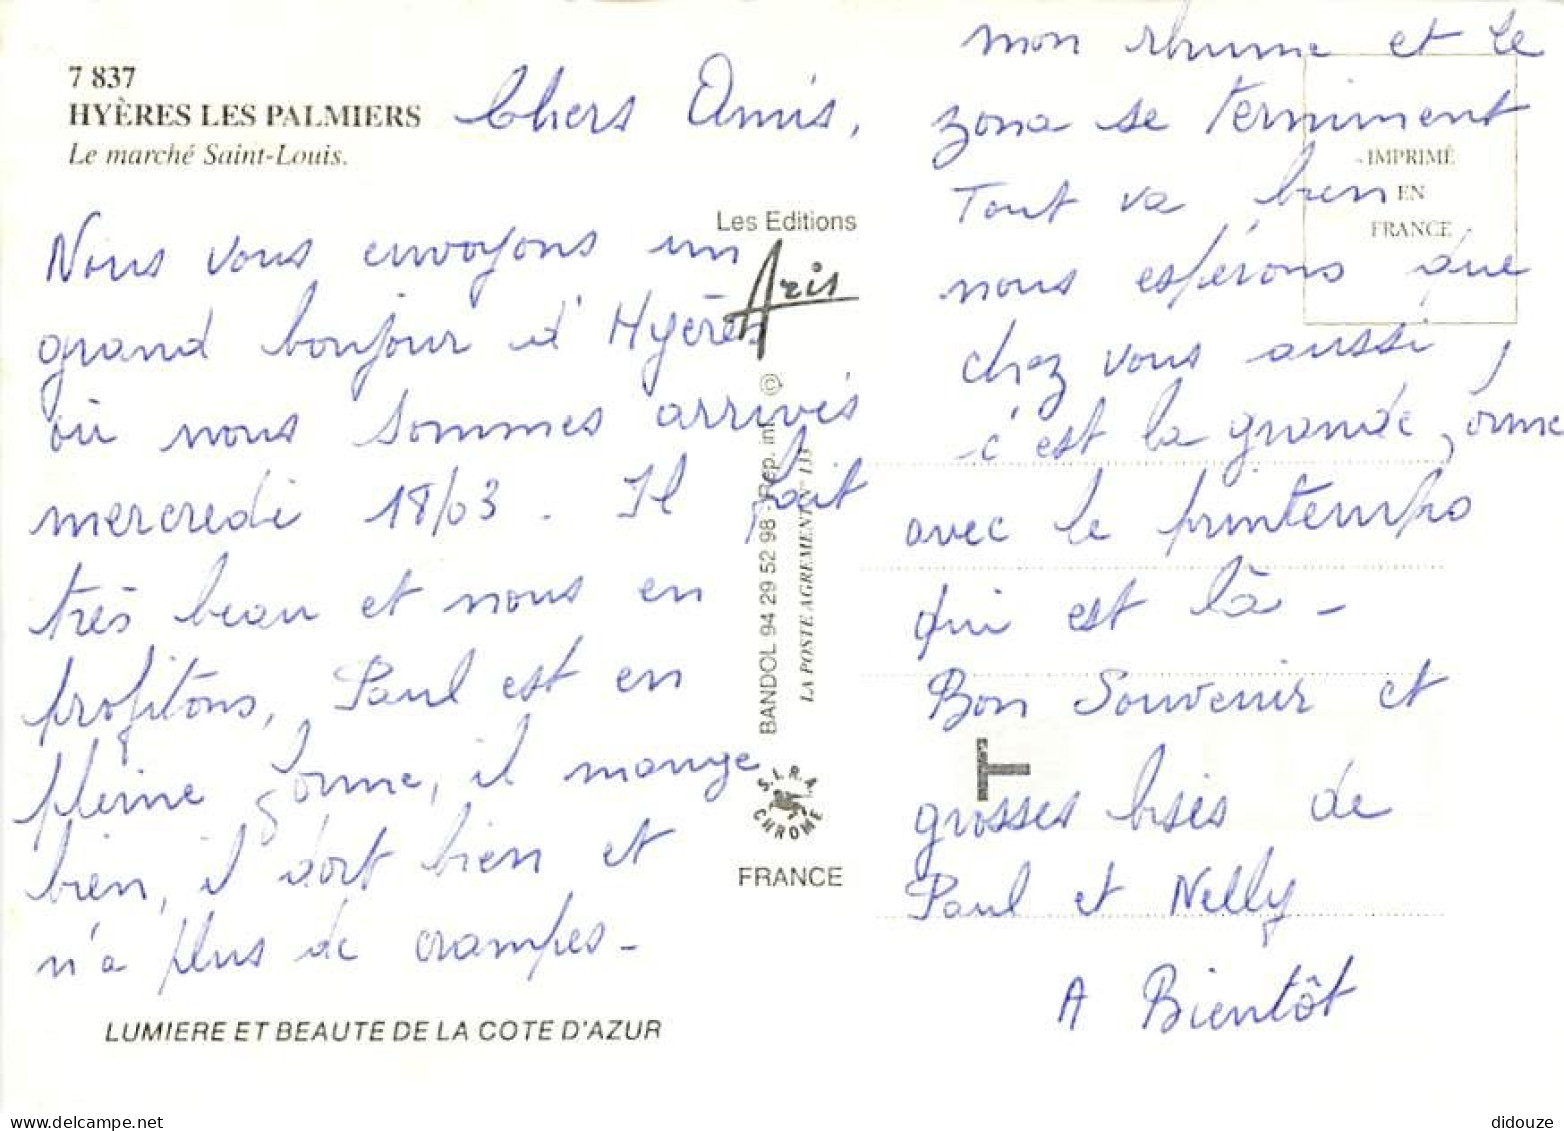 7 837
HYÈRES LES PALMIERS
Le marché Saint-Louis.
Chers Amis,
Nous vous envoyons un
grand bonjour d'Hyères
où nous sommes arrivés
mercredi 18/03. Il fait
très beau et nous en
profitons, Paul est en
pleine forme, il mange
bien, il dort bien et
n'a plus de crampes-
LUMIERE ET BEAUTE DE LA COTE D'AZUR
Les Editions
Aris
BANDOL 94 29 52 98 - Rép. int. ©
LA POSTE AGREMENT N° 133
S.I.R.A
CHROME
FRANCE
mon rhume et le
zona se terminent
Tout va bien
nous espérons que
chez vous aussi,
c'est la grande forme
avec le printemps
qui est là -
Bon Souvenir et
grosses bises de
Paul et Nelly
A Bientôt
IMPRIMÉ
EN
FRANCE
T
didouze
delcampe.net